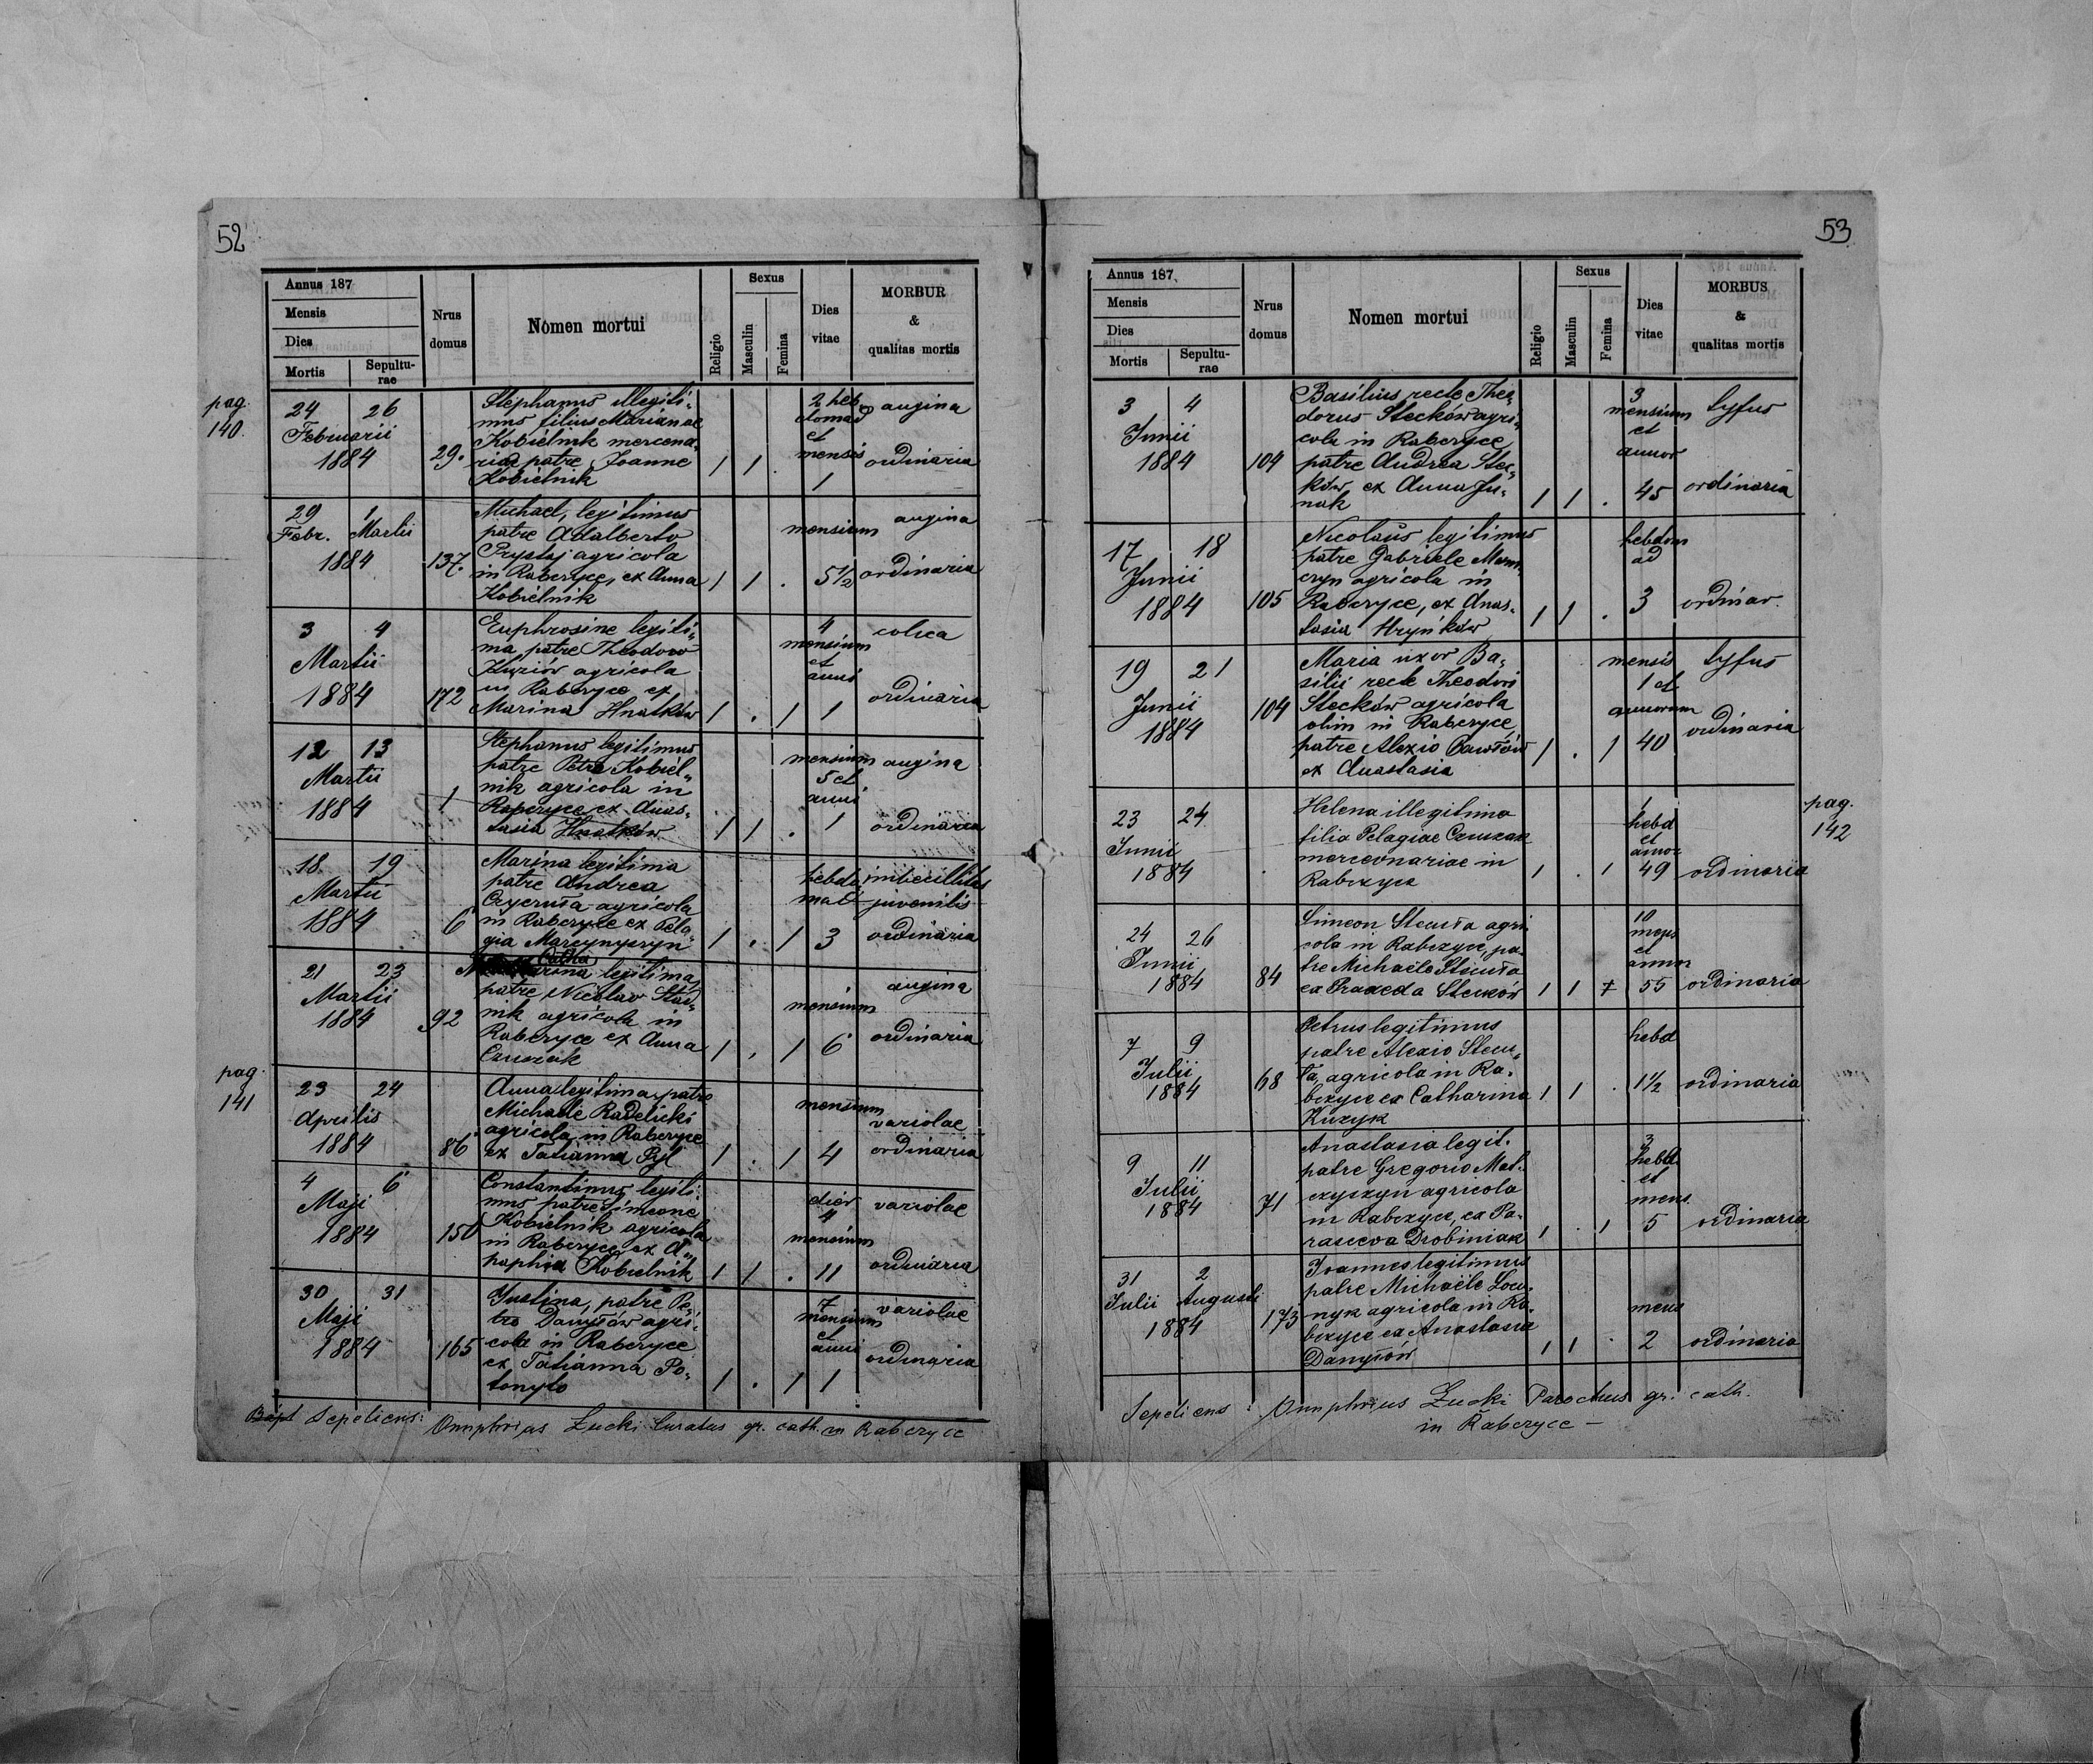 52
Annus 187
Mensis
Dies
Mortis
Sepultu-
rae
Nrus
domus
Nomen mortui
Religio
Sexus
Masculin
Femina
Dies
vitae
MORBUR
&
qualitas mortis
pag.
140.
24 26
Februarii
1884
29.
Stephanus illegiti„
mus filius Marianae
Kobielnik mercena„
riae patre Joanne
Kobielnik
1 1 .
2 heb„
domad
et
mensis
1
angina
ordinaria
29 1
Febr. Martii
1884
137.
Michael, legitimus
patre Adalberto
Prystaj agricola
in Rabczyce, ex Anna
Kobielnik
1 1 .
mensium
5½
angina
ordinaria
3 4
Martii
1884
172
Euphrosine legiti„
ma patre Theodoro
Kuziór agricola
in Rabczyce ex
Marina Hnatków
1 . 1
4
mensium
et
anni
1
colica
ordinaria
12 13
Martii
1884
1
Stephanus legitimus
patre Petro Kobiel„
nik agricola in
Rapczyce ex Anas„
tasia Hnatków
1 1 .
mensium
5 et
anni
1
angina
ordinaria
18 19
Martii
1884
6
Marina legitima
patre Andrea
agricola
in Rabczyce ex Pela„
gia Marcynyszyn
1 . 1
hebdo„
mad
3
imbecillitas
juvenilis
ordinaria
21 23
Martii
1884
92
Catha
rina legitima,
patre Nicolao
nik agricola in
Rabczyce ex Anna
Czuszak
1 . 1
mensium
6
angina
ordinaria
pag.
141
23 24
Aprilis
1884
86
Anna legitima, patre
Michaele Radelicki
agricola in Rabczyce
ex Tatianna Pyl
1 . 1
mensium
4
variolae
ordinaria
4 6
Maji
1884
150
Constantinus legiti„
mus patre Simeone
Kobielnik agricola
in Rabczyce, ex A„
naphia Kobielnik
1 1 .
dier
4
mensium
11
variolae
ordinaria
30 31
Maji
1884
165
Justina, patre Pe„
tro Danyłów agri„
cola in Rabczyce
ex Tatianna Po„
tonyło
1 . 1
7
mensium
et
anni
1
variolae
ordinaria
Sepeliens: Onuphrius Łucki Curatus gr. cath. in Rabczyce
53
Annus 187
Mensis
Dies
Mortis
Sepultu-
rae
Nrus
domus
Nomen mortui
Religio
Sexus
Masculin
Femina
Dies
vitae
MORBUS
&
qualitas mortis
3 4
Junii
1884
104
Basilius recte Theo„
dorus Stecków agri„
cola in Rabczyce
patre Andrea Stec„
ków, ex Anna Ju„
nak
1 1 .
3
mensium
et
annor
45
tyfus
ordinaria
17 18
Junii
1884
105
Nicolaus legitimus
patre Gabriele Mam„
czyn agricola in
Rabczyce, ex Anas„
tasia Hryńków
1 1 .
hebdom
ad
3
ordinar.
19 21
Junii
1884
104
Maria uxor Ba„
silii recte Theodori
Stecków agricola
olim in Rabczyce
patre Alexio Pawłów
ex Anastasia
1 . 1
mensis
1 et
annorum
40
tyfus
ordinaria
pag.
142
23 24
Junii
1884
.
Helena illegitima
filia Pelagiae Czuszak
mercenariae in
Rabczyce
1 . 1
1
hebd
et
annor
49
ordinaria
24 26
Junii
1884
84
Simeon Stecuła agri
cola in Rabczyce, pa„
tre Michaële Stecuła
ex Praxeda Steców
1 1
10
mens
et
annor
55
ordinaria
7 9
Julii
1884
68
Petrus legitimus
patre Alexio Stecu„
ła, agricola in Ra„
bczyce ex Catharina
Kuzyk
1 1 .
hebd
1½
ordinaria
9 11
Julii
1884
71
Anastasia legit.
patre Gregorio Mat„
czyszyn agricola
in Rabczyce, ex Pa„
rasceva Drobiniak
1 . 1
3
hebd
et
mens.
5
ordinaria
31 2
Julii Augusti
1884
173
Joannes legitimus
patre Michaële
nyk agricola in Ra„
bczyce ex Anastasia
Danyłów
1 1 .
mens
2
ordinaria
Sepeliens: Onuphrius Łucki Parochus gr. cath.
in Rabczyce —